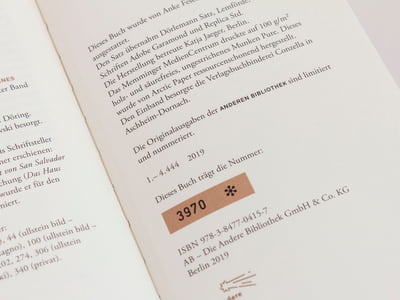 NES
ter Band
Döring.
vski besorgt.
s Schriftsteller
er erschienen:
t von San Salvador
chung (Das Haus
wurde er für den
niert.
), 44 (ullstein bild –
tagno), 100 (ullstein
202, 274, 306 (ullstein
ki), 340 (privat).
Dieses Buch wurde von Anke Fese
ausgestattet.
Den Satz übernahm Dörlemann Satz, Lemförde.
Schriften Adobe Garamond und Replica Std.
Die Herstellung betreute Katja Jaeger, Berlin.
Das Memminger MedienCentrum druckte auf 100 g/m²
holz- und säurefreies, ungestrichenes Munken Pure. Dieses
wurde von Arctic Paper ressourcenschonend hergestellt.
Den Einband besorgte die Verlagsbuchbinderei Conzella in
Aschheim-Dornach.
Die Originalausgaben der ANDEREN BIBLIOTHEK sind limitiert
und nummeriert.
1.– 4.444 2019
Dieses Buch trägt die Nummer:
3970 ✻
ISBN 978-3-8477-0415-7
AB – Die Andere Bibliothek GmbH & Co. KG
Berlin 2019